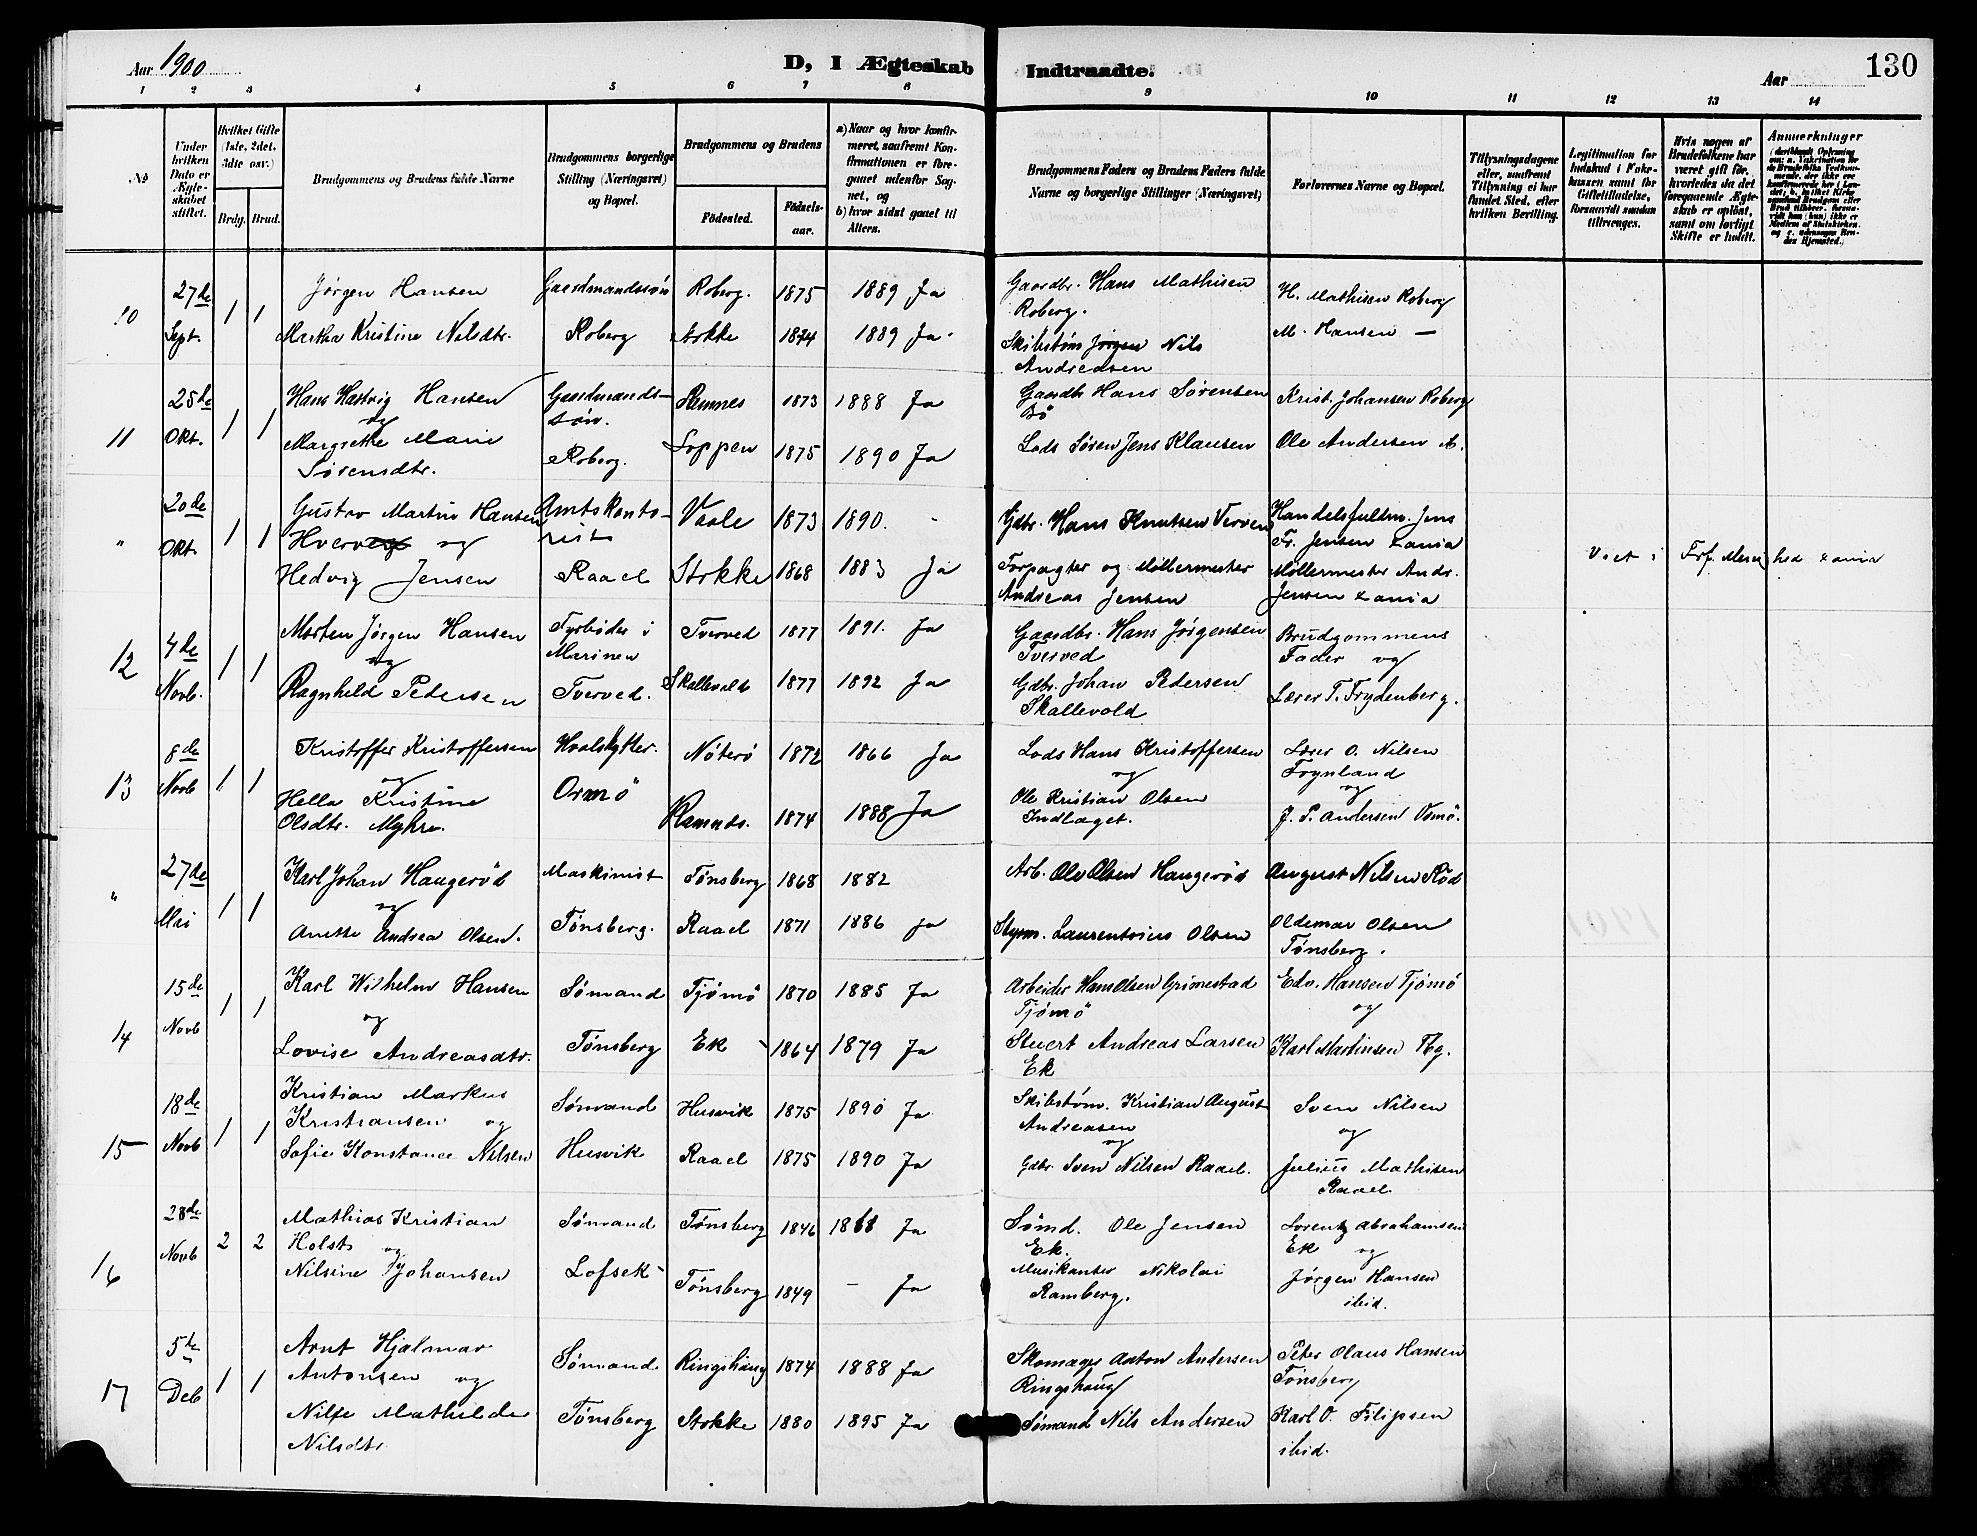 Aar 1900
D, I Ægteskab Indtraadte.
Aar
130
1 2 3 4 5 6 7 8 9 10 11 12 13 14
No
Under hvilken Dato er Ægteskabet stiftet.
Hvilket Gifte (1ste, 2det, 3dte osv.)
Brdg. Brud.
Brudgommens og Brudens fulde Navne
Brudgommens borgerlige Stilling (Næringsvei) og Bopæl.
Brudgommens og Brudens
Fødested. Fødselsaar.
a) Naar og hvor konfirmeret, saafremt Konfirmationen er foregaaet udenfor Sognet, og
b) hvor sidst gaaet til Alters.
Brudgommens Faders og Brudens Faders fulde Navne og borgerlige Stillinger (Næringsvei)
Forlovernes Navne og Bopæl.
Tillysningsdagene eller, saafremt Tillysning ei har fundet Sted, efter hvilken Bevilling.
Legitimation for Indskud i Enkekassen samt for Giftetilladelse, forsaavidt saadan tiltrænges.
Hvis nogen af Brudefolkene har været gift før, hvorledes da det foregaaende Ægteskab er opløst, samt om lovligt Skifte er holdt.
Anmærkninger
10 27de Sept. 1 1 Jørgen Hansen Gaardmandssøn Roberg. 1875 1889 Ja Gaardbr. Hans Mathisen Roberg. H. Mathisen Roberg
Martha Kristine Nilsdtr. Roberg Stokke 1874 1889 Ja Skibstøm Jørgen Nils Andreasen M. Hansen —
11 25de Okt. 1 1 Hans Hartvig Hansen og Gaardmandssøn. Ramnes 1873 1888 Ja Gaardbr Hans Sørensen Bö Krist. Johansen Roberg
Margrethe Marie Sørensdtr. Roberg. Loppen 1875 1890 Ja Lods Søren Jens Klausen Ole Andersen
" 20de Okt. 1 1 Gustav Martin Hansen og Amtskontorist Vaale 1873 1890. Gdbr. Hans Knutsen Handelsfuldm. Jens Fr. Jensen Xania
Hedvig Jensen Raael Stokke 1868 1883 Ja Forpagter og Møllermester Andreas Jensen Møllermester Andr. Jensen Xania
Viet i Frf. Menighed Xania
12 4de Novb. 1 1 Morten Jørgen Hansen og Fyrbøder i Marinen Tverved 1877 1891. Ja Gaardbr. Hans Jørgensen Tverved Brudgommens Fader og
Ragnhild Pedersen Tverved. Skallevold 1877 1892 Ja Gdbr. Johan Pedersen Skallevold Lærer T. Frydenberg.
13 8de Novb 1 1 Kristoffer Kristoffersen og Hvalskytter. Nöterö 1872 1866 Ja Lods Hans Kristoffersen og Lærer O. Nilsen Frynland og
Hella Kristine Olsdtr. Myhre. Ormö Ramnds. 1874 1888 Ja Ole Kristian Olsen Indlaget. J. P. Andersen Vsmö.
" 27de Mai 1 1 Karl Johan Haugeröd og Maskinist Tønsberg 1868 1882 Arb. Ole Olsen Haugeröd August Nilsen Röd
Anette Andrea Olsen. Tønsberg. Raael 1871 1886 Ja Styrm. Laurentsius Olsen Oldemar Olsen Tønsberg.
14 15de Novb 1 1 Karl Wilhelm Hansen og Sømand Tjömö 1870 1885 Ja Arbeider Hans Olsen Grimestad Tjömö Edv. Hansen Tjömö og
Lovise Andreasdtr. Tønsberg Ek 1864 1879 Ja Stuert Andreas Larsen Ek Karl Martinsen Tbg.
15 18de Novb 1 1 Kristian Markus Kristiansen og Sømand Husvik 1875 1890 Ja Skibstøm. Kristian August Andreasen og Sven Nilsen og
Sofie Konstance Nilsen Husvik Raael 1875 1890 Ja Gdbr Sven Nilsen Raael. Julius Mathisen Raael
16 28de Novb 2 2 Mathias Kristian Holst og Sømand Tønsberg 1846 1861 Ja Sømd. Ole Jensen Ek. Lorentz Abrahamsen Ek og
Nilsine Johansen Lofsek Tønsberg 1849 — Ja Musikanter Nikolai Ramberg. Jørgen Hansen ibid.
17 5te Deb 1 1 Arnt Hjalmar Antonsen og Sømand Ringshaug 1874 1888 Ja Skomager Anton Andersen Ringshaug Peter Olaus Hansen Tønsberg
Nilse Mathilde Nilsdtr Tønsberg Stokke 1880 1895 Ja Sømand Nils Andersen Karl O. Filipsen ibid.